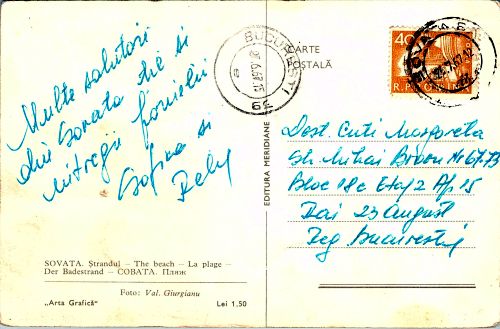 Multe salutări
din Sovata ție și
întregii familii
Sofica și
Dely
SOVATA. Ștrandul – The beach – La plage –
Der Badestrand – СОВАТА. Пляж
Foto: Val. Giurgianu
„Arta Grafică”
Lei 1,50
EDITURA MERIDIANE
CARTE
POȘTALĂ
BUCUREȘTI
40
R.P.
Dest. Cuti Margareta
Str. Mihai Bravu Nr 67-73
Bloc 18c Etaj 2 Ap 15
Rai 23 August
Reg București